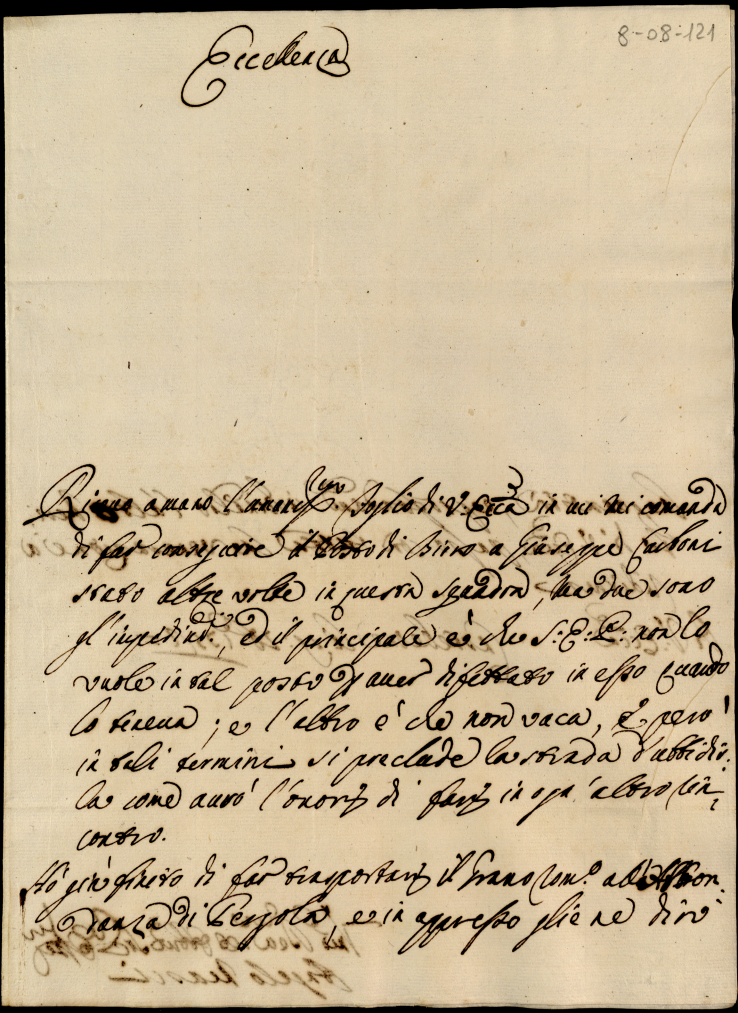 8-08-121
Eccellenza
amano l'umaniss.mo foglio di V. Ecc.a in cui mi comanda
di far conseguire il Posto di Birro a Giuseppe Carboni
stato altre volte in questa squadra, ma due sono
gl'impedim.ti, ed il principale è che S: E: P: non lo
vuole in tal posto p aver difettato in esso quando
lo teneva; e l'altro è che non vaca, e però
in tali termini si preclude la strada d'ubbidir.
la come avrò l'onore di farlo in ogn'altro in-
contro.
Hò già finito di far trasportare il Grano com.e all'Abbon-
danza di Pergola, e in appresso gliene dirò